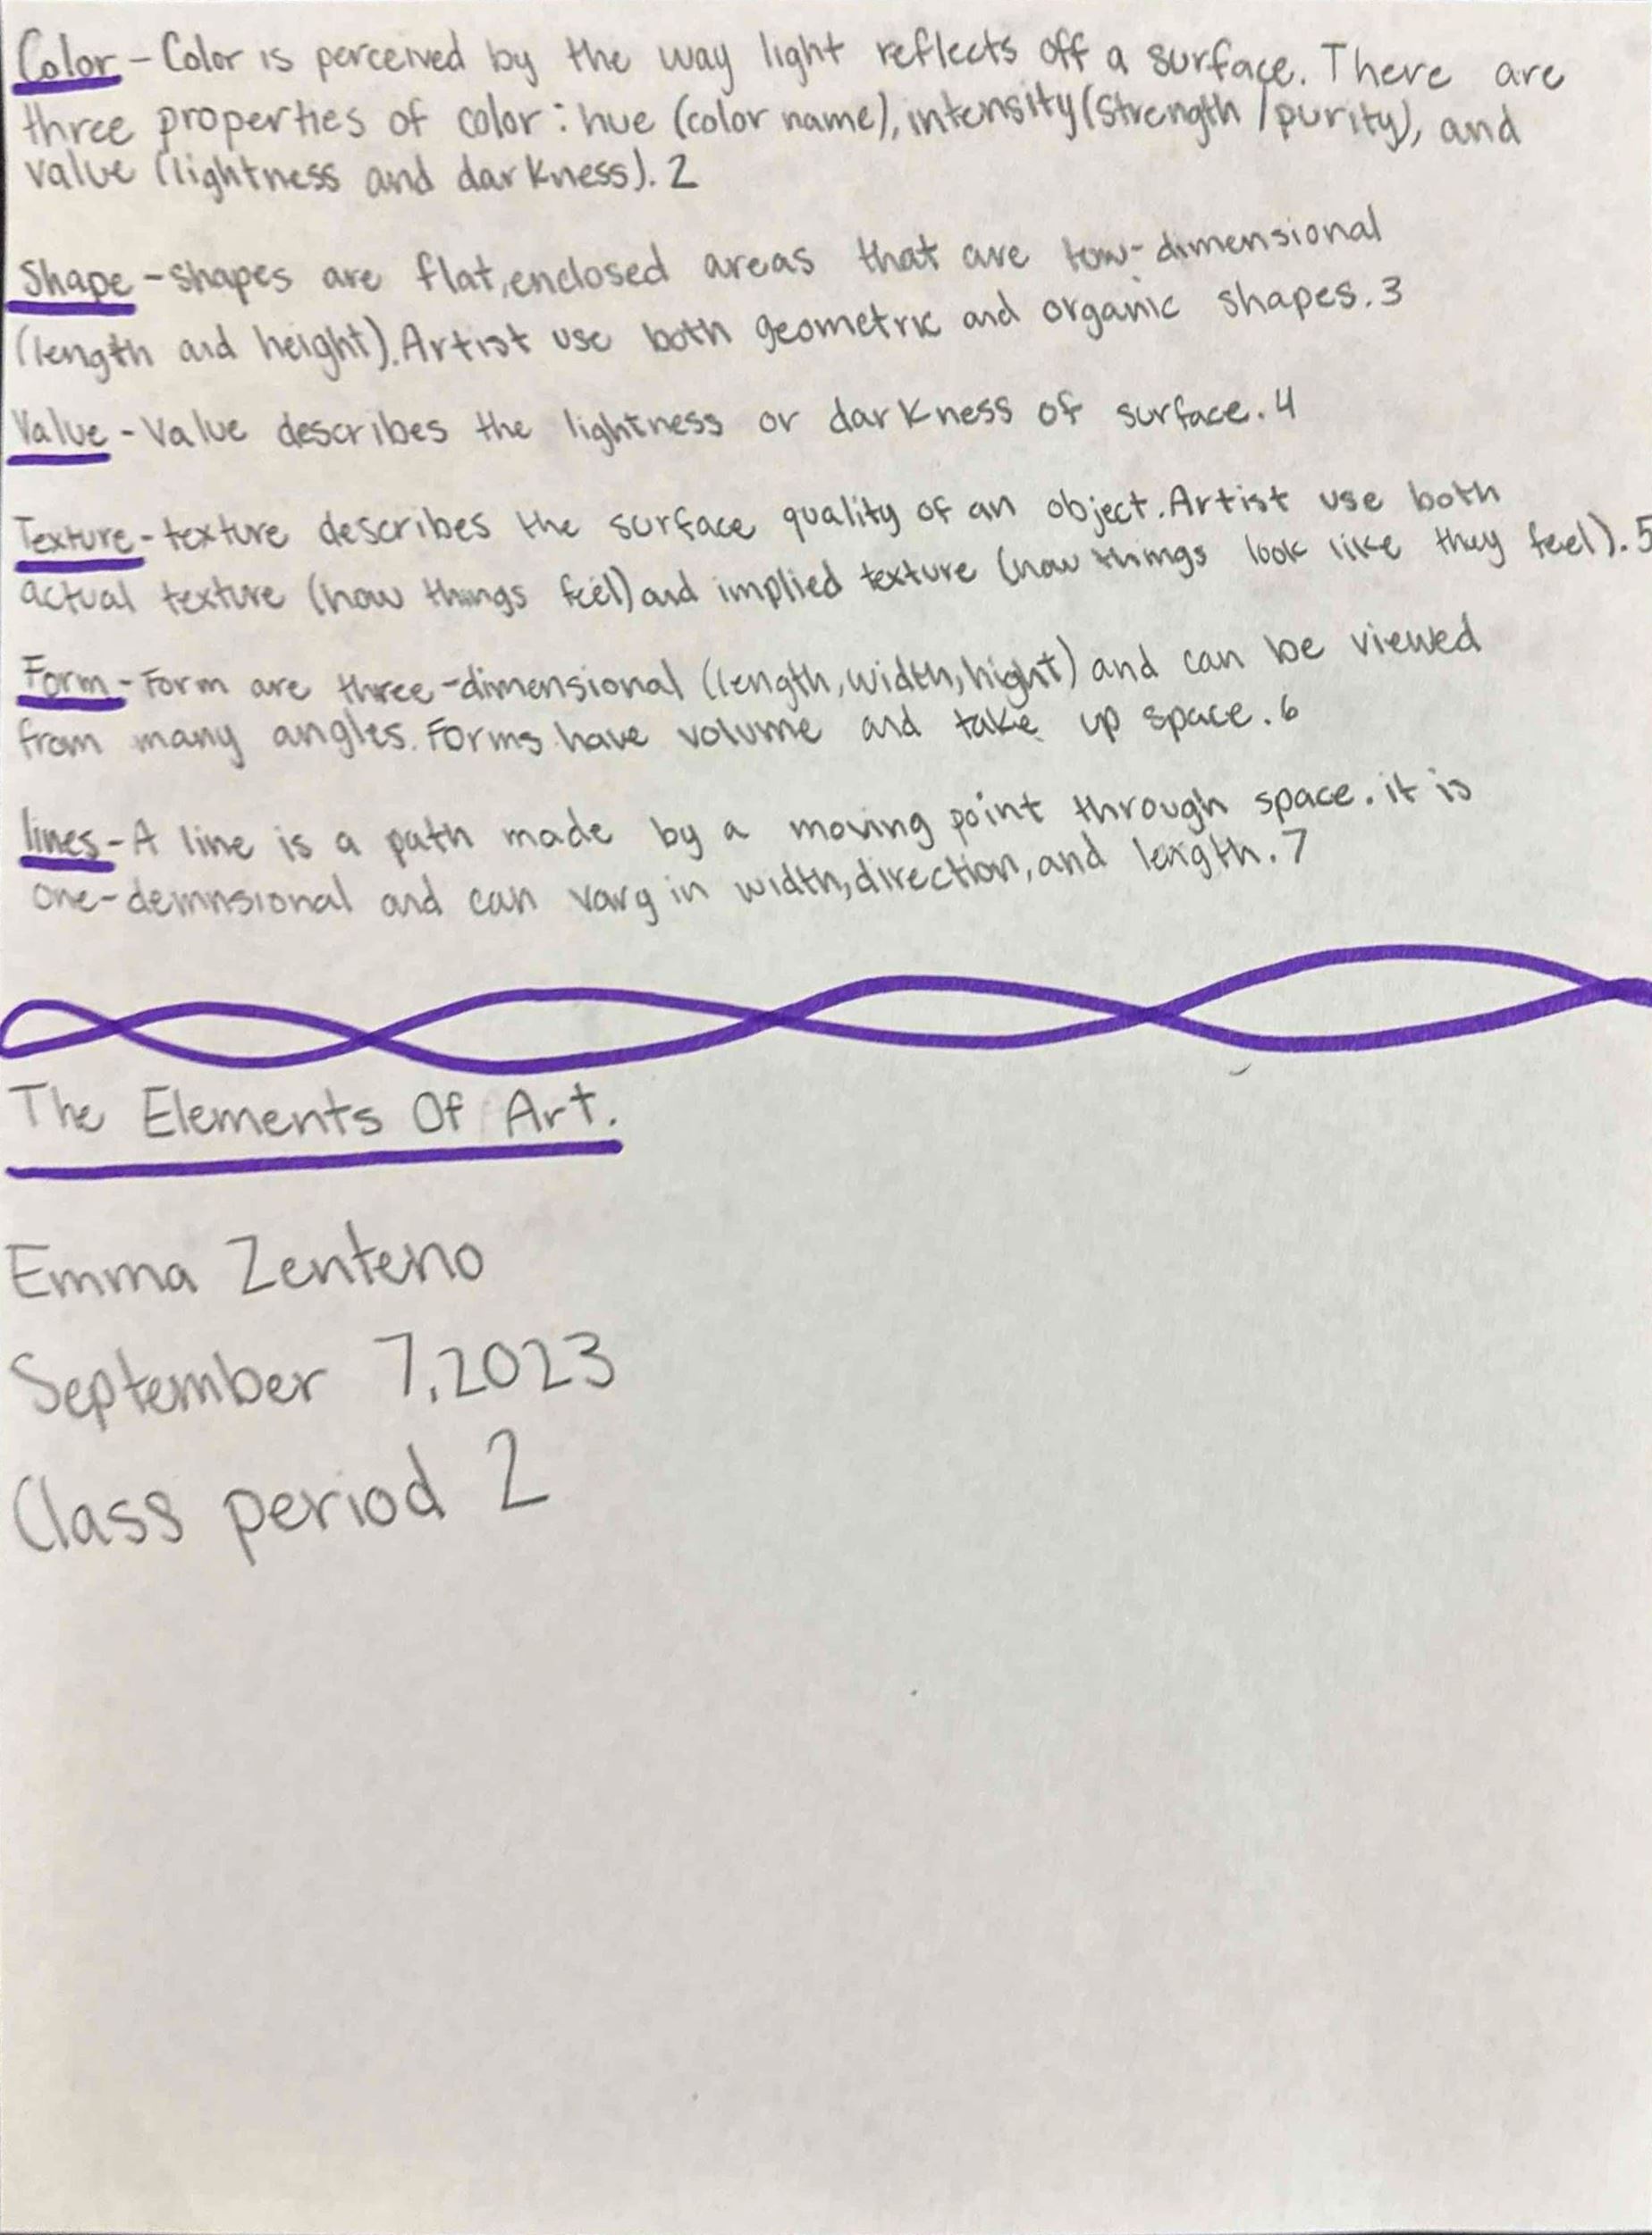 Color - Color is perceived by the way light reflects off a surface. There are
three properties of color: hue (color name), intensity (strength / purity), and
value (lightness and darkness). 2
Shape - shapes are flat, enclosed areas that are tow-dimensional
(length and height). Artist use both geometric and organic shapes. 3
Value - Value describes the lightness or darkness of surface. 4
Texture - texture describes the surface quality of an object. Artist use both
actual texture (how things feel) and implied texture (how things look like they feel). 5
Form - Form are three-dimensional (length, width, hight) and can be viewed
from many angles. Forms have volume and take up space. 6
lines - A line is a path made by a moving point through space. it is
one-demnsional and can vary in width, direction, and length. 7
The Elements Of Art.
Emma Zenteno
September 7, 2023
Class period 2